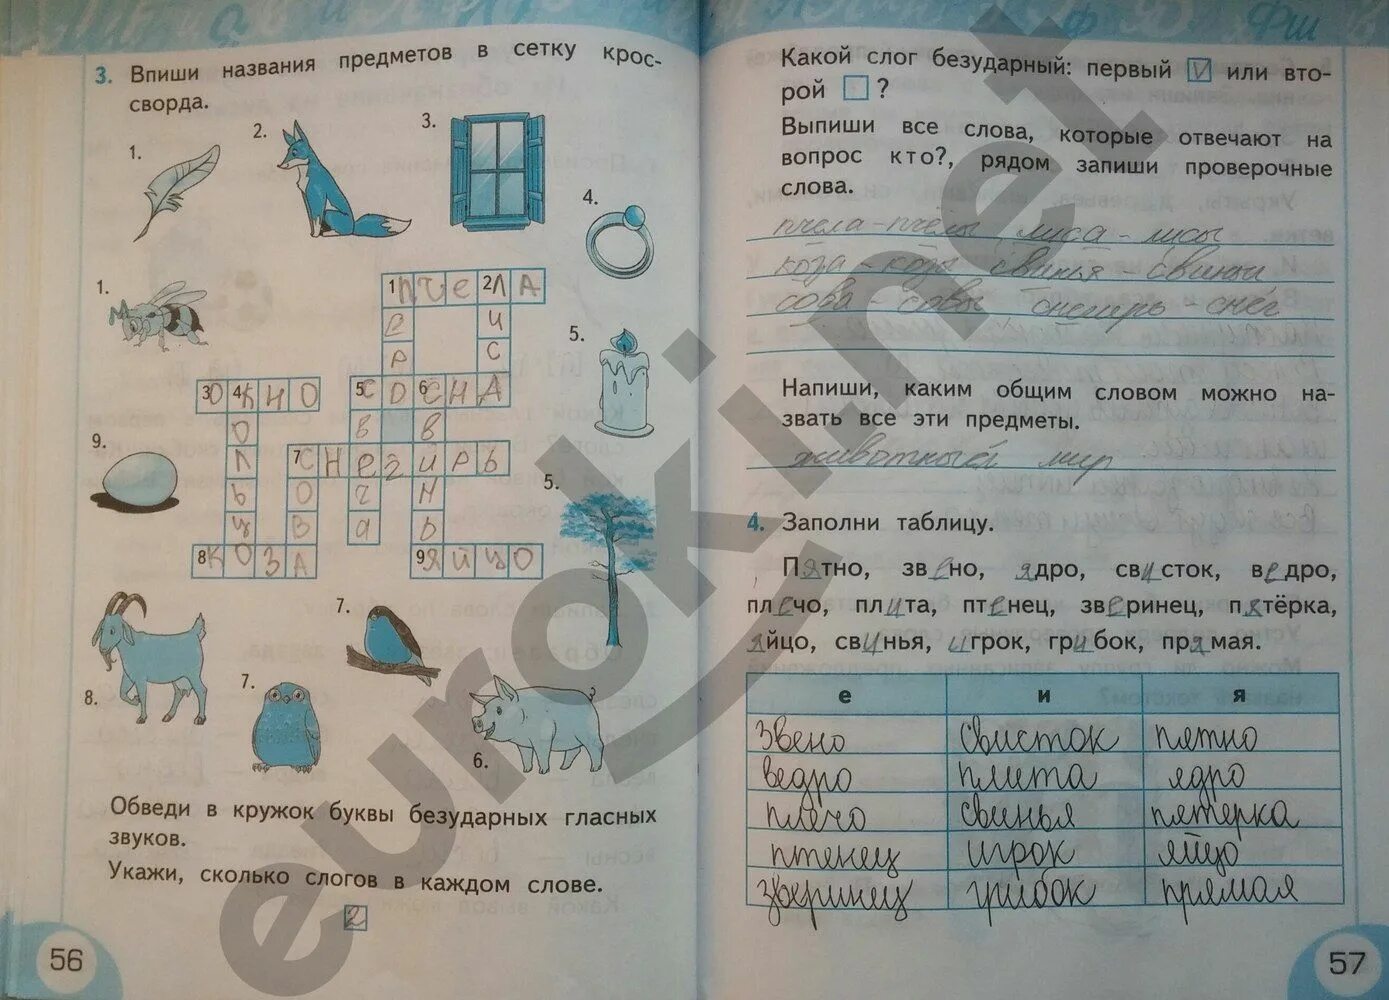 3. Впиши названия предметов в сетку крос-
сворда.
1.
2.
3.
4.
1.
5.
9.
5.
8.
7.
7.
6.
1ПЧЕ2ЛА
Е И
Р С
3О4КНО 5СО6СНА
О В В
Л 7СНЕГИРЬ
Ь О Ч Н
Ц В А Ь
8КОЗА 9ЯЙЦО
Обведи в кружок буквы безударных гласных
звуков.
Укажи, сколько слогов в каждом слове.
2
56
Какой слог безударный: первый V или вто-
рой ?
Выпиши все слова, которые отвечают на
вопрос кто?, рядом запиши проверочные
слова.
пчела - пчёлы лиса - лисы
коза - козы свинья - свиньи
сова - совы снегирь - снег
Напиши, каким общим словом можно на-
звать все эти предметы.
животный мир
4. Заполни таблицу.
Пятно, звено, ядро, свисток, ведро,
плечо, плита, птенец, зверинец, пятёрка,
яйцо, свинья, игрок, грибок, прямая.
е и я
звено свисток пятно
ведро плита ядро
плечо свинья пятерка
птенец игрок яйцо
зверинец грибок прямая
57
euroki.net